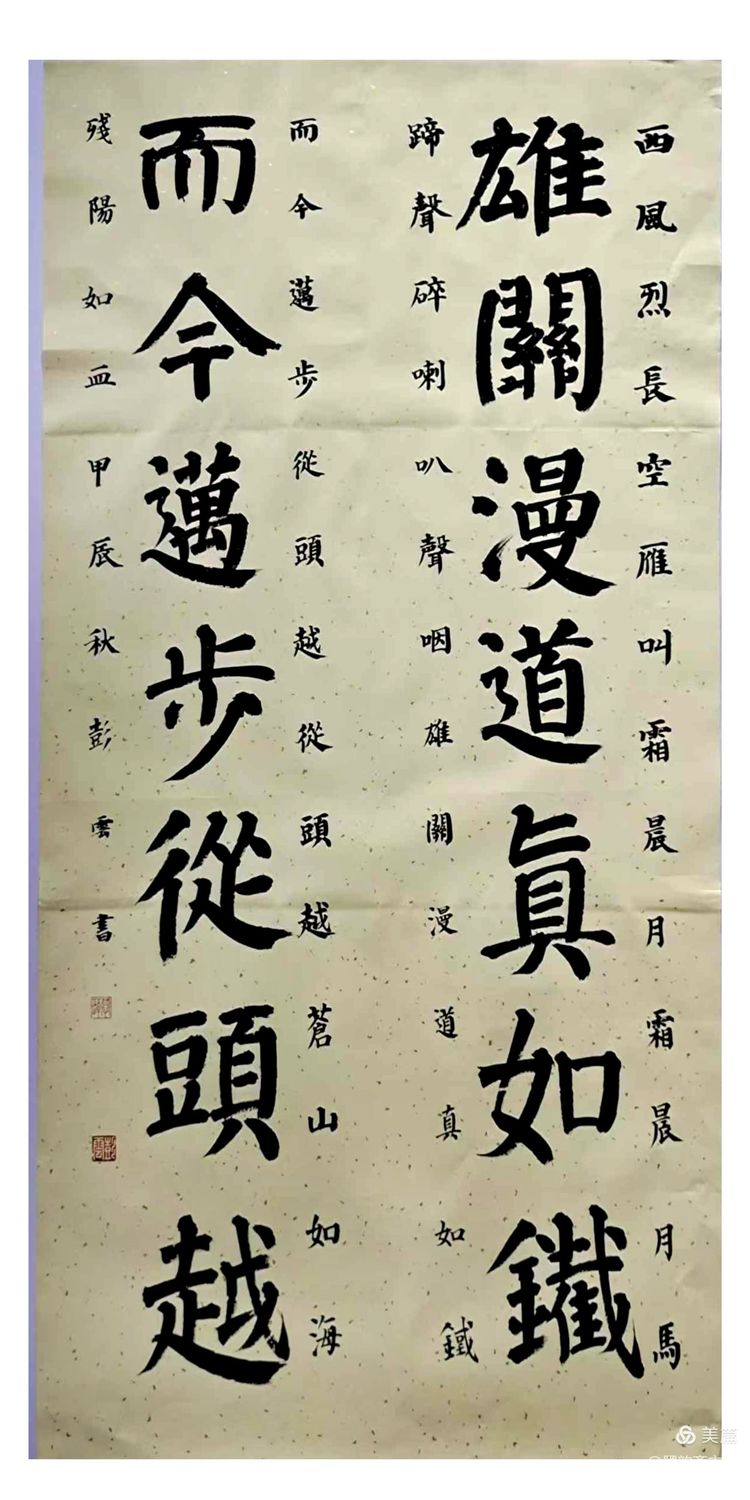 西風烈長空雁叫霜晨月霜晨月馬
雄關漫道眞如鐵
蹄聲碎喇叭聲咽雄關漫道真如鐵
而今邁步從頭越從頭越蒼山如海
而今邁步從頭越
殘陽如血甲辰秋彭雲書
美篇